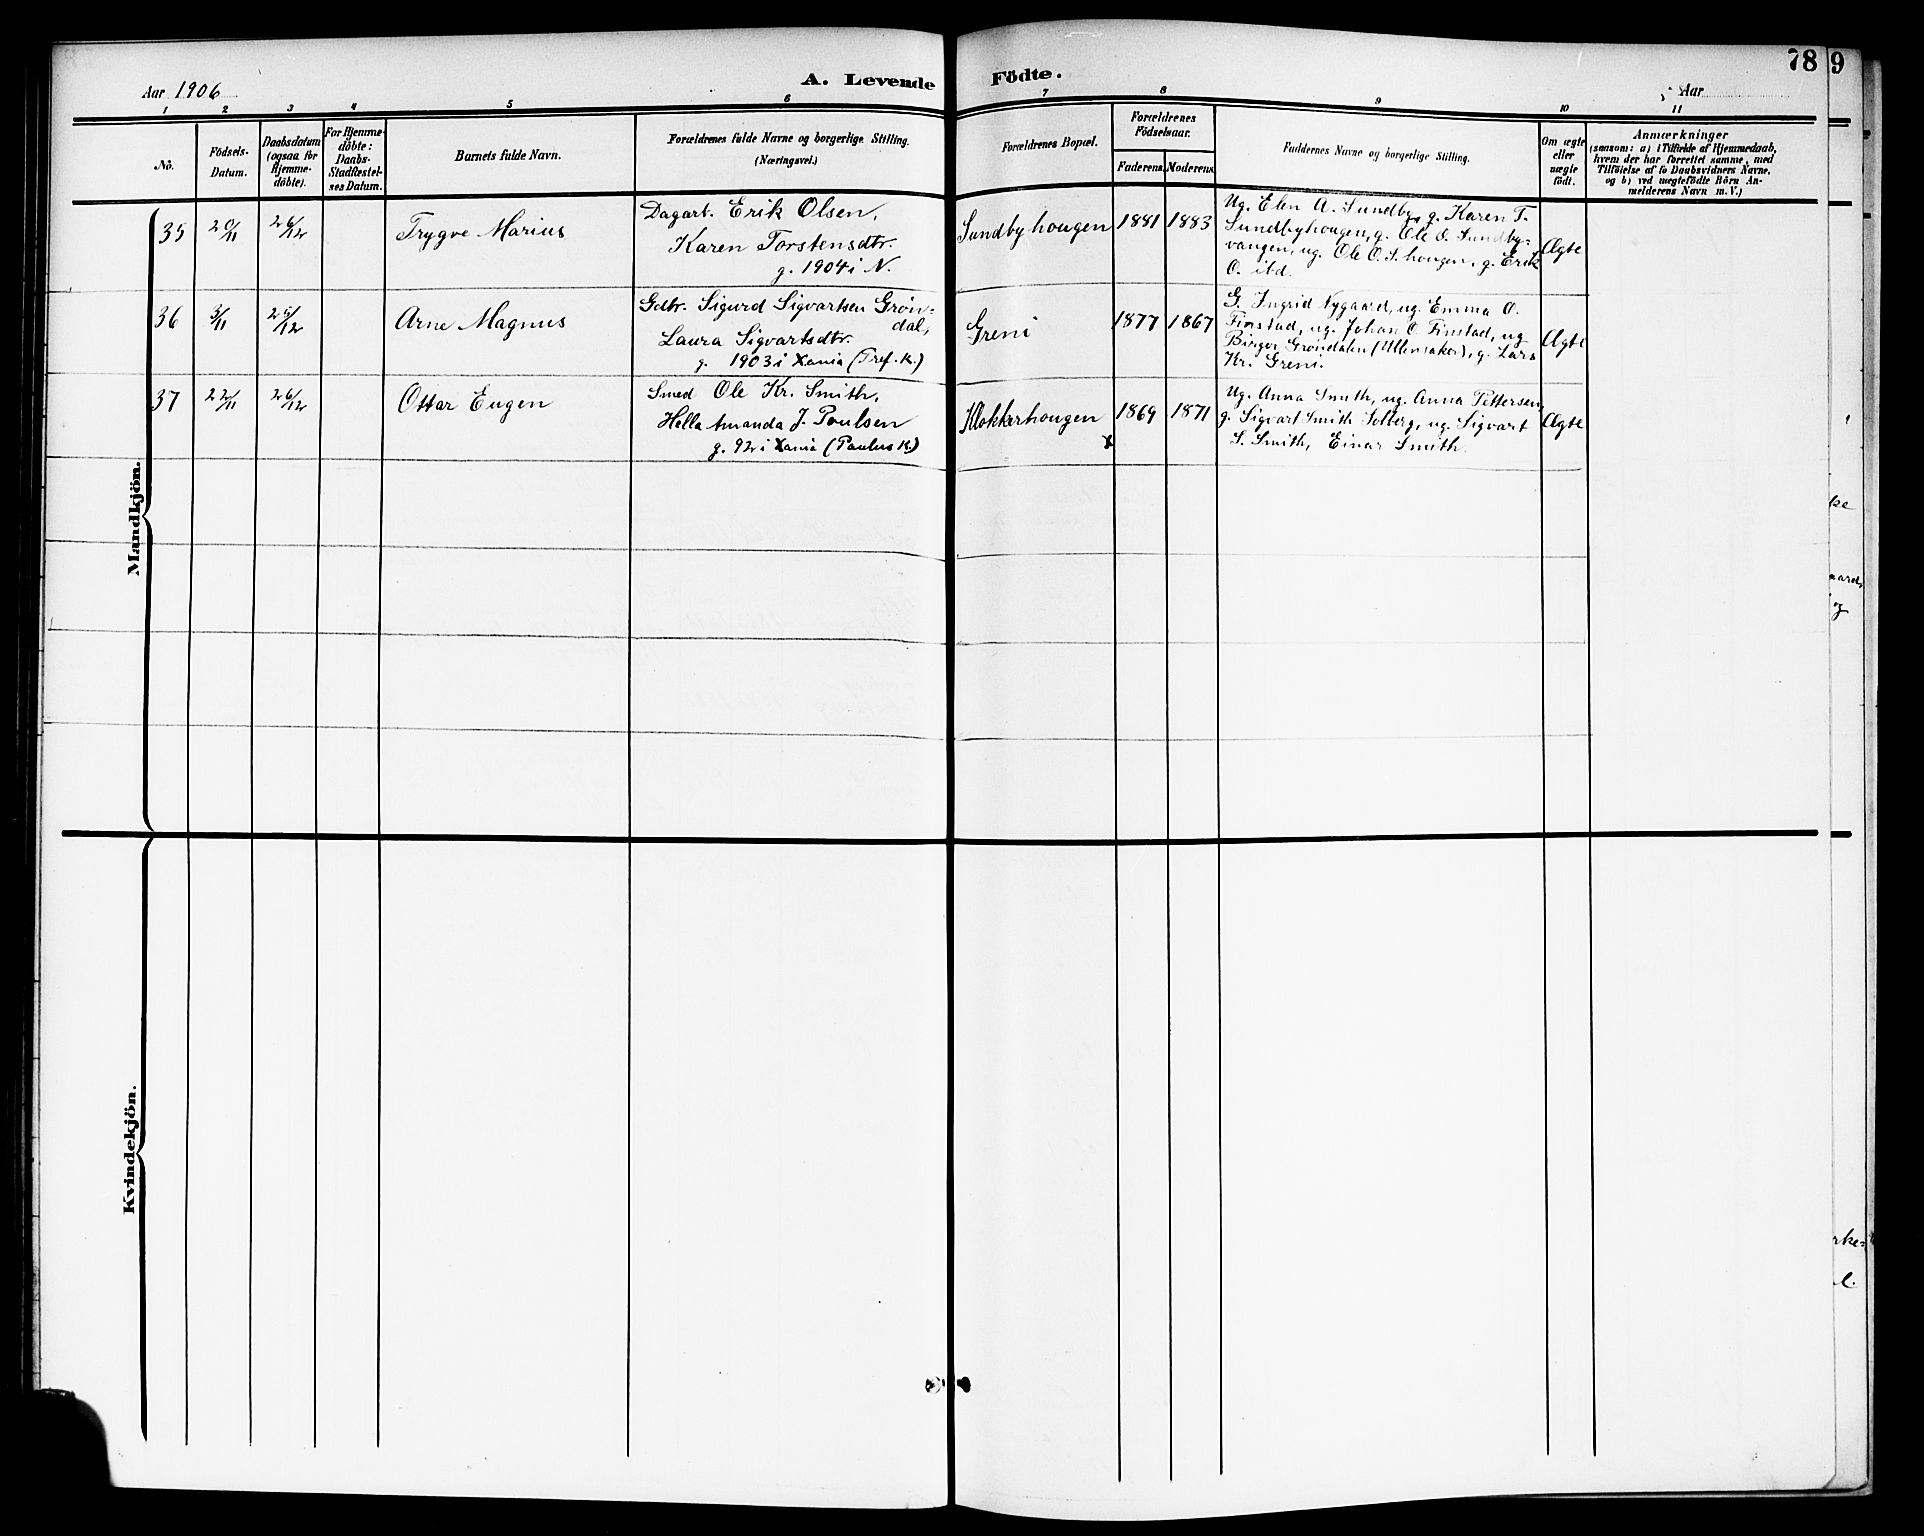 Aar 1906
A. Levende Födte.
78
9
Aar
1 2 3 4 5 6 7 8 9 10 11
No.
Födsels-
Datum.
Daabsdatum
(ogsaa for
Hjemme-
döbte).
For Hjemme-
döbte:
Daabs-
Stadfæstel-
ses Datum.
Barnets fulde Navn.
Forældrenes fulde Navne og borgerlige Stilling.
(Næringsvei.)
Forældrenes Bopæl.
Forældrenes
Födselsaar.
Faderens. Moderens.
Faddernes Navne og borgerlige Stilling.
Om ægte
eller
uægte
födt.
Anmærkninger
(saasom: a) i Tilfælde af Hjemmedaab,
hvem der har forrettet samme, med
Tilföielse af to Daabsvidners Navne,
og b) ved uægtefödte Börn An-
melderens Navn m. V.)
Mandkjön.
35 20/11 26/12 Trygve Marius
Dagarb. Erik Olsen,
Karen Torstensdtr.
g. 1904 i N.
Sundbyhougen 1881 1883
Ug. Elen A. Sundby, g. Karen T.
Sundbyhougen, g. Ole O. Sundby-
vangen, ug. Ole O. S.hougen, g. Erik
O. ibd.
Ægte
36 3/11 25/12 Arne Magnus
Gdtr. Sigurd Sigvartsen Grøn-
dal,
Laura Sigvartsdtr.
g. 1903 i Xania (Tref. k.)
Greni 1877 1867
G. Ingrid Nygaard, ug. Emma O.
Finstad, ug. Johan O. Finstad, ug
Birger Grøndalen (Ullensaker), g. Lars
Kr. Greni.
Ægte
37 22/11 26/12 Ottar Eugen
Smed Ole Kr. Smith,
Hella Amanda J. Poulsen
g. 92 i Xania (Paulus K.)
Klokkerhougen 1869 1871
x
Ug. Anna Smith, ug. Anna Pettersen,
g. Sigvart Smith Solberg, ug. Sigvart
S. Smith, Einar Smith.
Ægte
Kvindekjön.